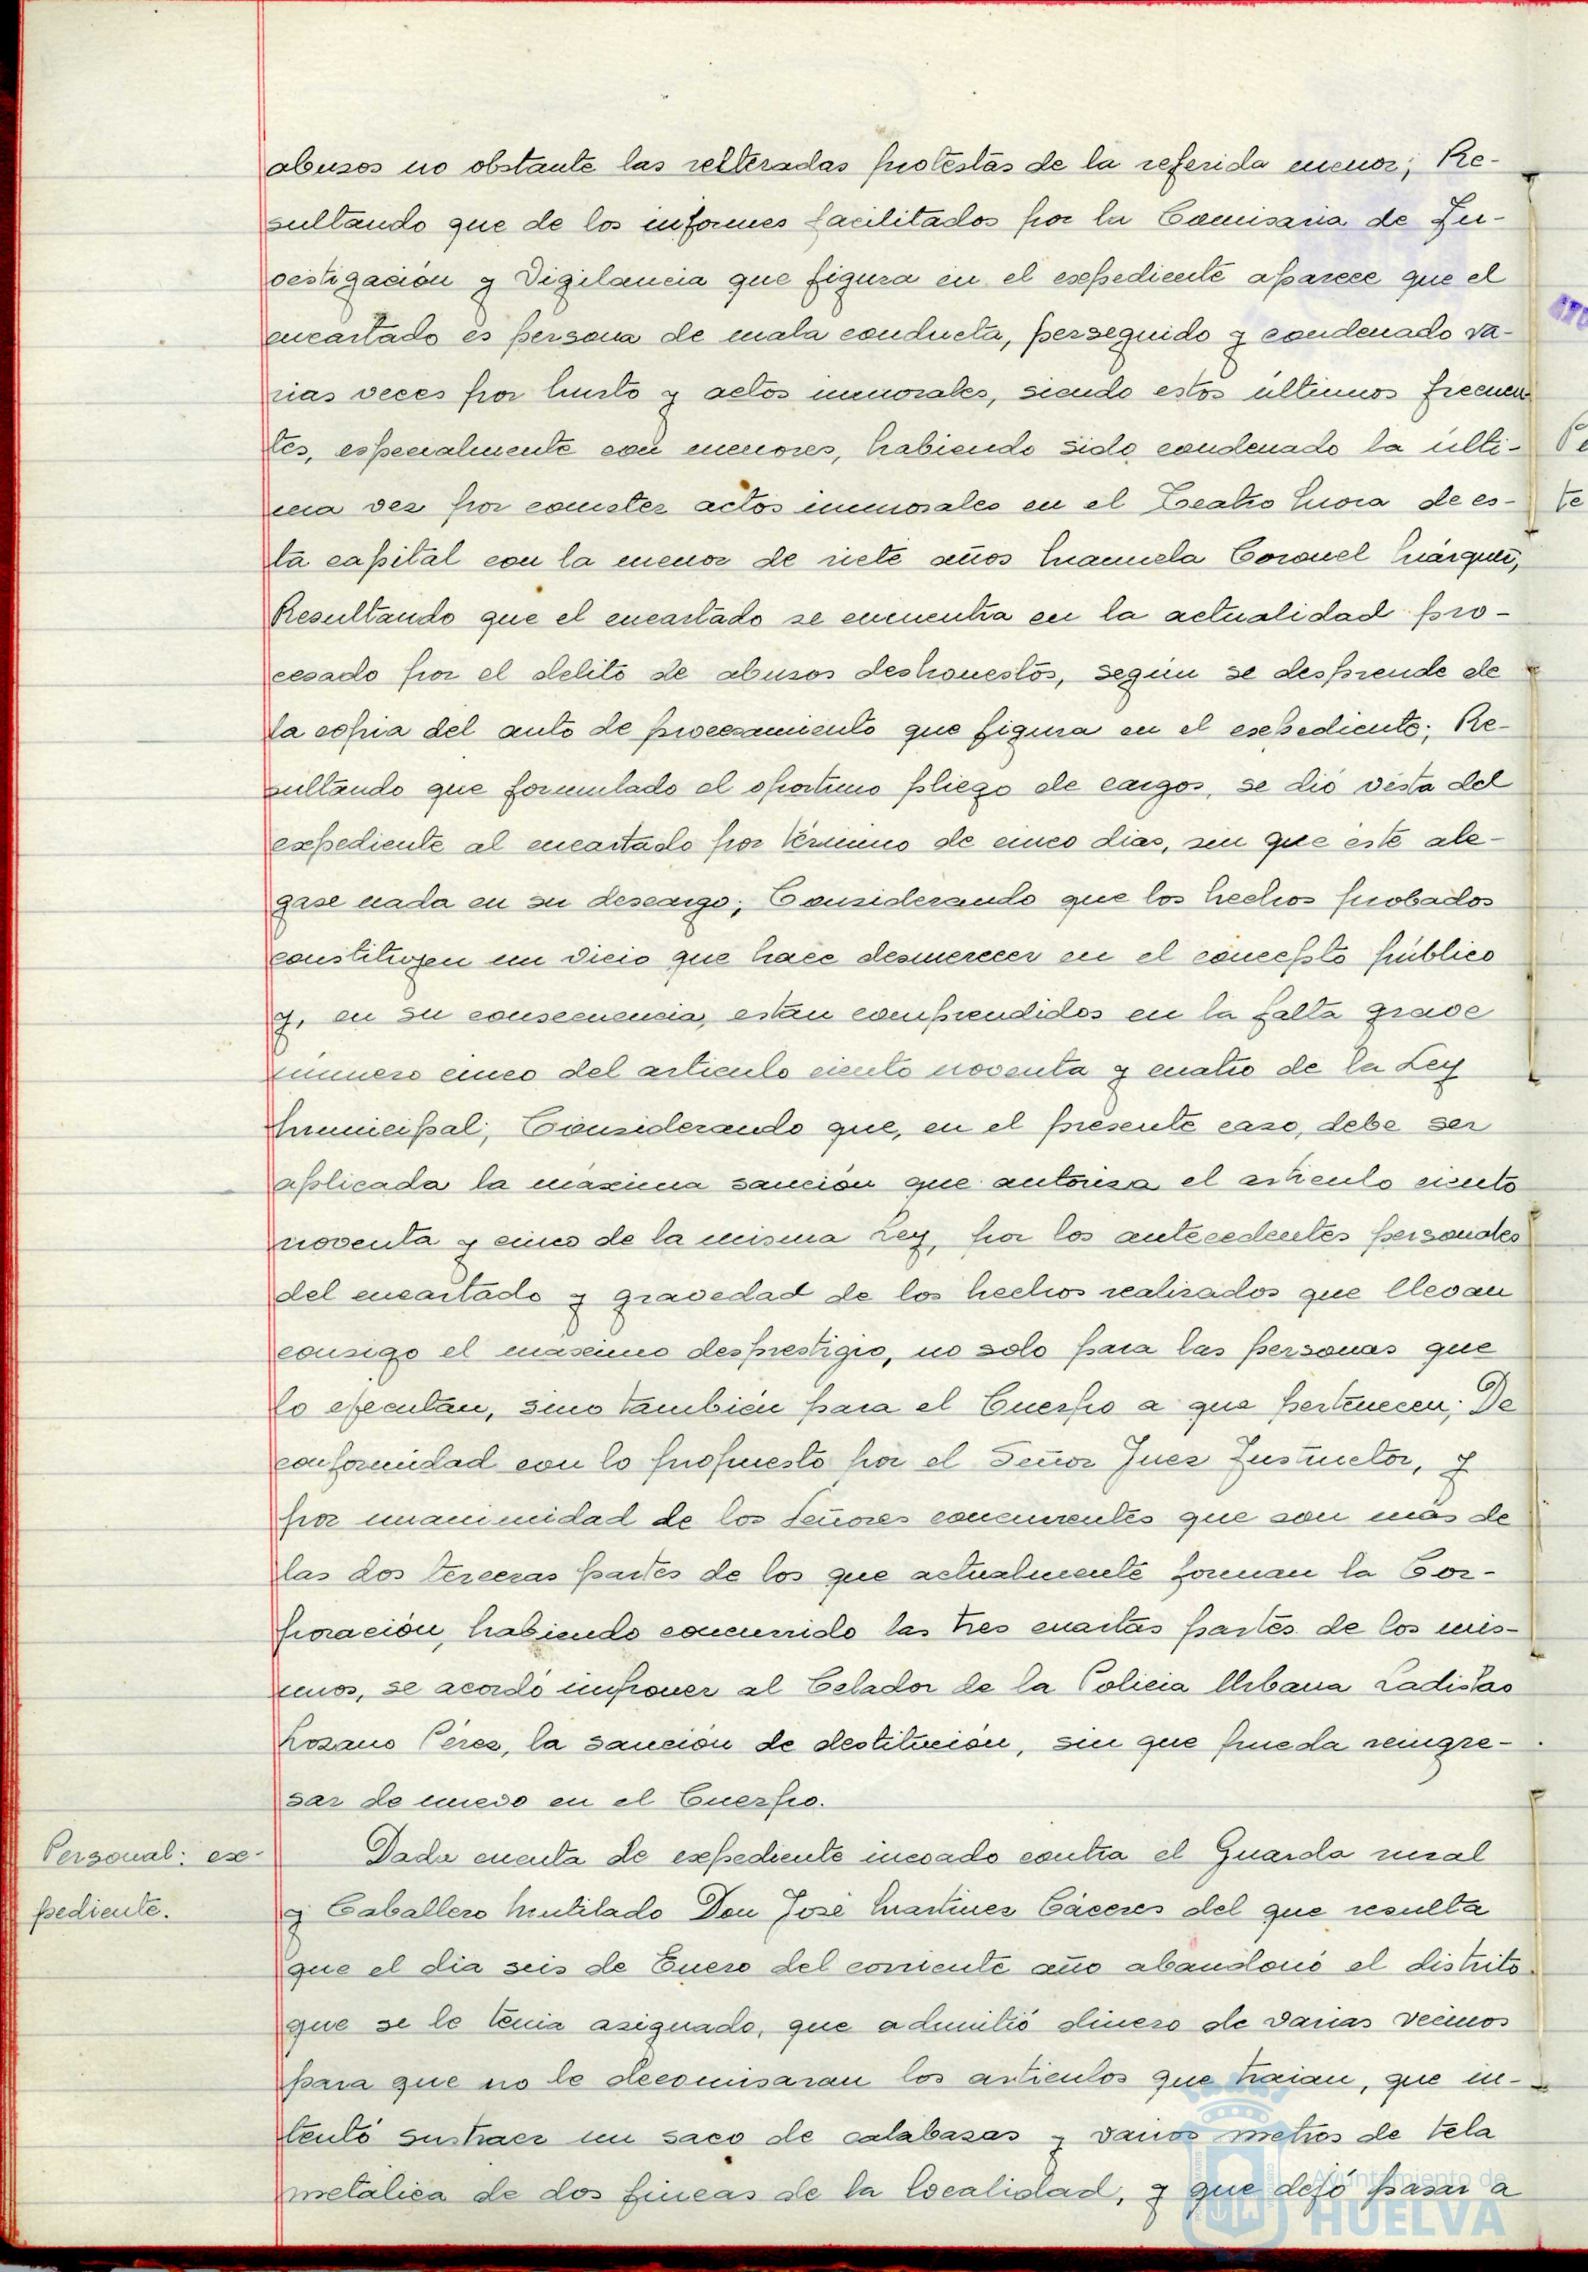 abusos no obstante las reiteradas protestas de la referida menor; Re-
sultando que de los informes facilitados por la Comisaria de In-
vestigación y Vigilancia que figura en el expediente aparece que el
encartado es persona de mala conducta, perseguido y condenado va-
rias veces por hurto y actos inmorales, siendo estos últimos frecuen-
tes, especialmente con menores, habiendo sido condenado la últi-
ma vez por cometer actos inmorales en el Teatro Mora de es-
ta capital con la menor de siete años Manuela Coronel Márquez;
Resultando que el encartado se encuentra en la actualidad pro-
cesado por el delito de abusos deshonestos, según se desprende de
la copia del auto de procesamiento que figura en el expediente; Re-
sultando que formulado el oportuno pliego de cargos, se dió vista del
expediente al encartado por término de cinco dias, sin que éste ale-
gase nada en su descargo; Considerando que los hechos probados
constituyen un vicio que hace desmerecer en el concepto público
y, en su consecuencia, están comprendidos en la falta grave
número cinco del articulo ciento noventa y cuatro de la Ley
Municipal; Considerando que, en el presente caso, debe ser
aplicada la máxima sanción que autoriza el articulo ciento
noventa y cinco de la misma Ley, por los antecedentes personales
del encartado y gravedad de los hechos realizados que llevan
consigo el máximo desprestigio, no solo para las personas que
lo ejecutan, sino también para el Cuerpo a que pertenecen; De
conformidad con lo propuesto por el Señor Juez Instructor, y
por unanimidad de los Señores concurrentes que son más de
las dos terceras partes de los que actualmente forman la Cor-
poración, habiendo concurrido las tres cuartas partes de los mis-
mos, se acordó imponer al Celador de la Policia Urbana Ladislao
Lozano Pérez, la sanción de destitución, sin que pueda reingre-
sar de nuevo en el Cuerpo.
Personal: ex-
pediente.
Dada cuenta de expediente incoado contra el Guarda rural
y Caballero Mutilado Don José Martinez Cáceres del que resulta
que el dia seis de Enero del corriente año abandonó el distrito
que se le tenia asignado, que admitió dinero de varias vecinos
para que no le decomisaran los articulos que traian, que in-
tentó sustraer un saco de calabazas y varios metros de tela
metálica de dos fincas de la localidad, y que dejó pasar a
Ayuntamiento de
HUELVA